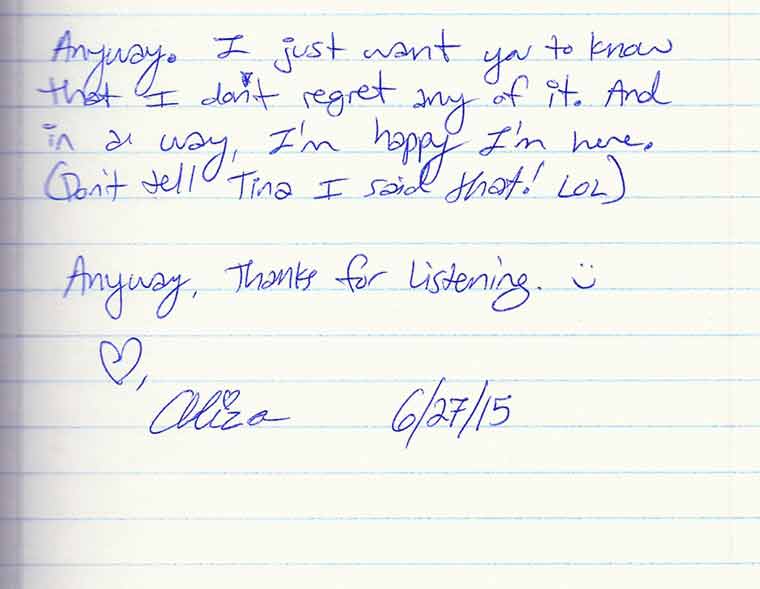 Anyway. I just want you to know
that I don't regret any of it. And
in a way, I'm happy I'm here.
(Don't tell Tina I said that! LOL)
Anyway, Thanks for Listening. :)
♡,
Aliza 6/27/15